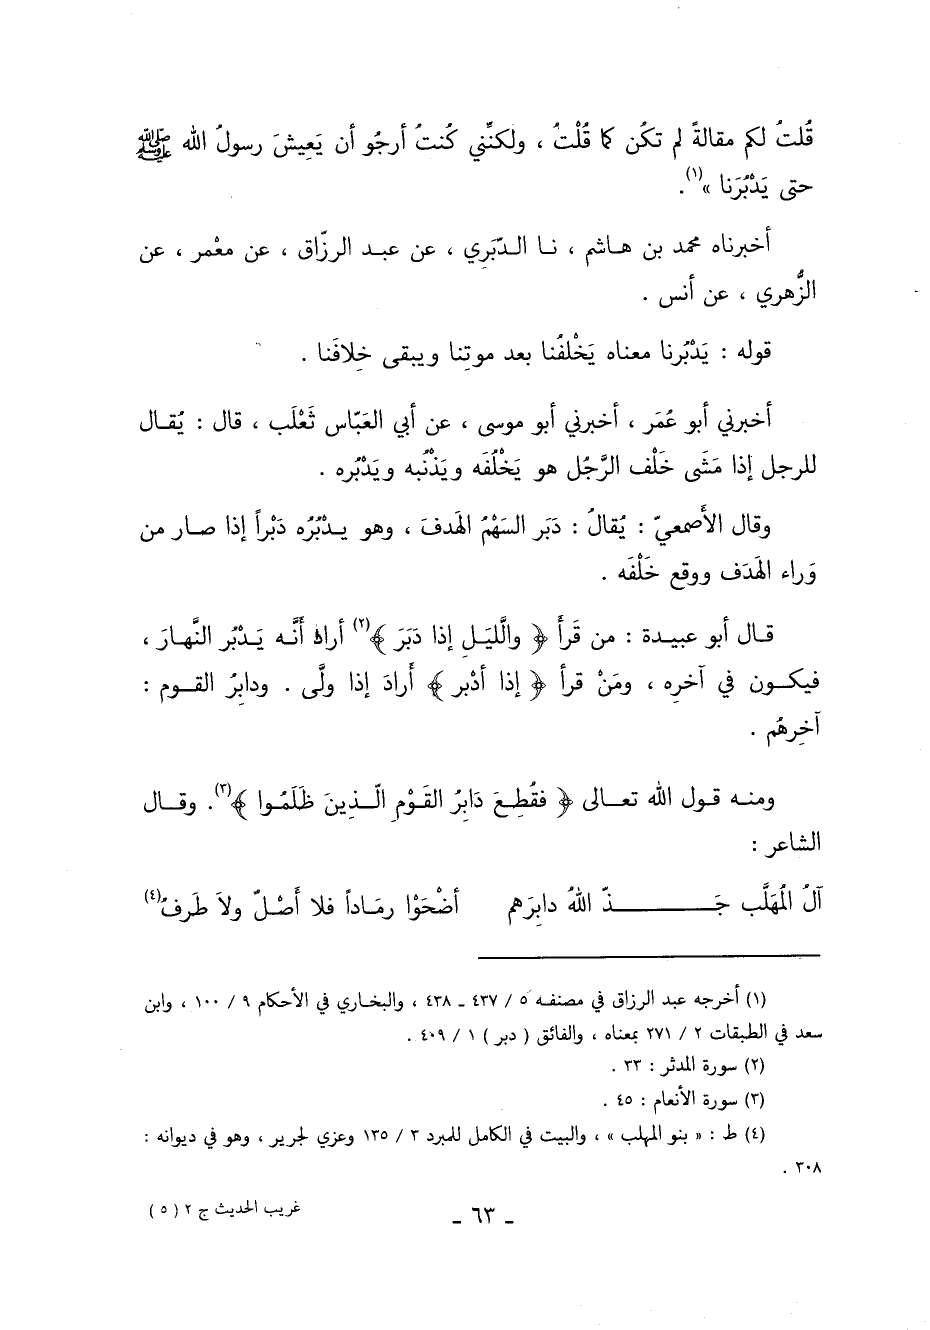 قُلتُ لكم مقالةً لم تكُن كما قُلْتُ ، ولكنِّني كُنتُ أرجُو أن يَعِيشَ رسولُ الله ﷺ
حتى يَدْبُرَنا »(١).
أخبرناه محمد بن هاشم ، نا الدّبَرِي ، عن عبد الرزّاق ، عن معْمر ، عن
الزُّهري ، عن أنس .
قوله : يَدْبُرنا معناه يَخْلفُنا بعد موتِنا ويبقى خِلافَنا .
أخبرني أبو عُمَر ، أخبرني أبو موسى ، عن أبي العَبّاس ثَعْلَب ، قال : يُقال
للرجل إذا مَشَى خَلْف الرَّجُل هو يَخْلُفَه ويَذْنُبه ويَدْبُره .
وقال الأَصمعيّ : يُقالُ : دَبَر السهْمُ الهَدفَ ، وهو يدْبُرُه دَبْراً إذا صار من
وَراء الهَدَف ووقع خَلْفَه .
قال أبو عبيدة : من قَرأَ ﴿ والَّليَلِ إذا دَبَرَ ﴾(٢) أرادَ أَنَّه يَدْبُر النَّهارَ ،
فيكون في آخرِه ، ومَنْ قرأ ﴿ إذا أدْبر ﴾ أَرادَ إذا ولَّى . ودابِرُ القوم :
آخِرهُم .
ومنه قول الله تعالى ﴿ فقُطِعَ دَابِرُ القَوْمِ الّذِينَ ظَلَمُوا ﴾(٣). وقال
الشاعر :
آلُ المُهَلَّب جَذّ اللهُ دابِرَهم أضْحَوْا رمَاداً فلا أَصْلٌ ولاَ طَرفُ(٤)
(١) أخرجه عبد الرزاق في مصنفه ٥ / ٤٣٧ ـ ٤٣٨ ، والبخاري في الأحكام ٩ / ١٠٠ ، وابن
سعد في الطبقات ٢ / ٢٧١ بمعناه ، والفائق ( دبر ) ١ / ٤٠٩ .
(٢) سورة المدثر : ٣٣ .
(٣) سورة الأنعام : ٤٥ .
(٤) ط : « بنو المهلب » ، والبيت في الكامل للمبرد ٣ / ١٣٥ وعزي لجرير ، وهو في ديوانه :
٣٠٨ .
ـ ٦٣ ـ
غريب الحديث ج ٢ ( ٥ )